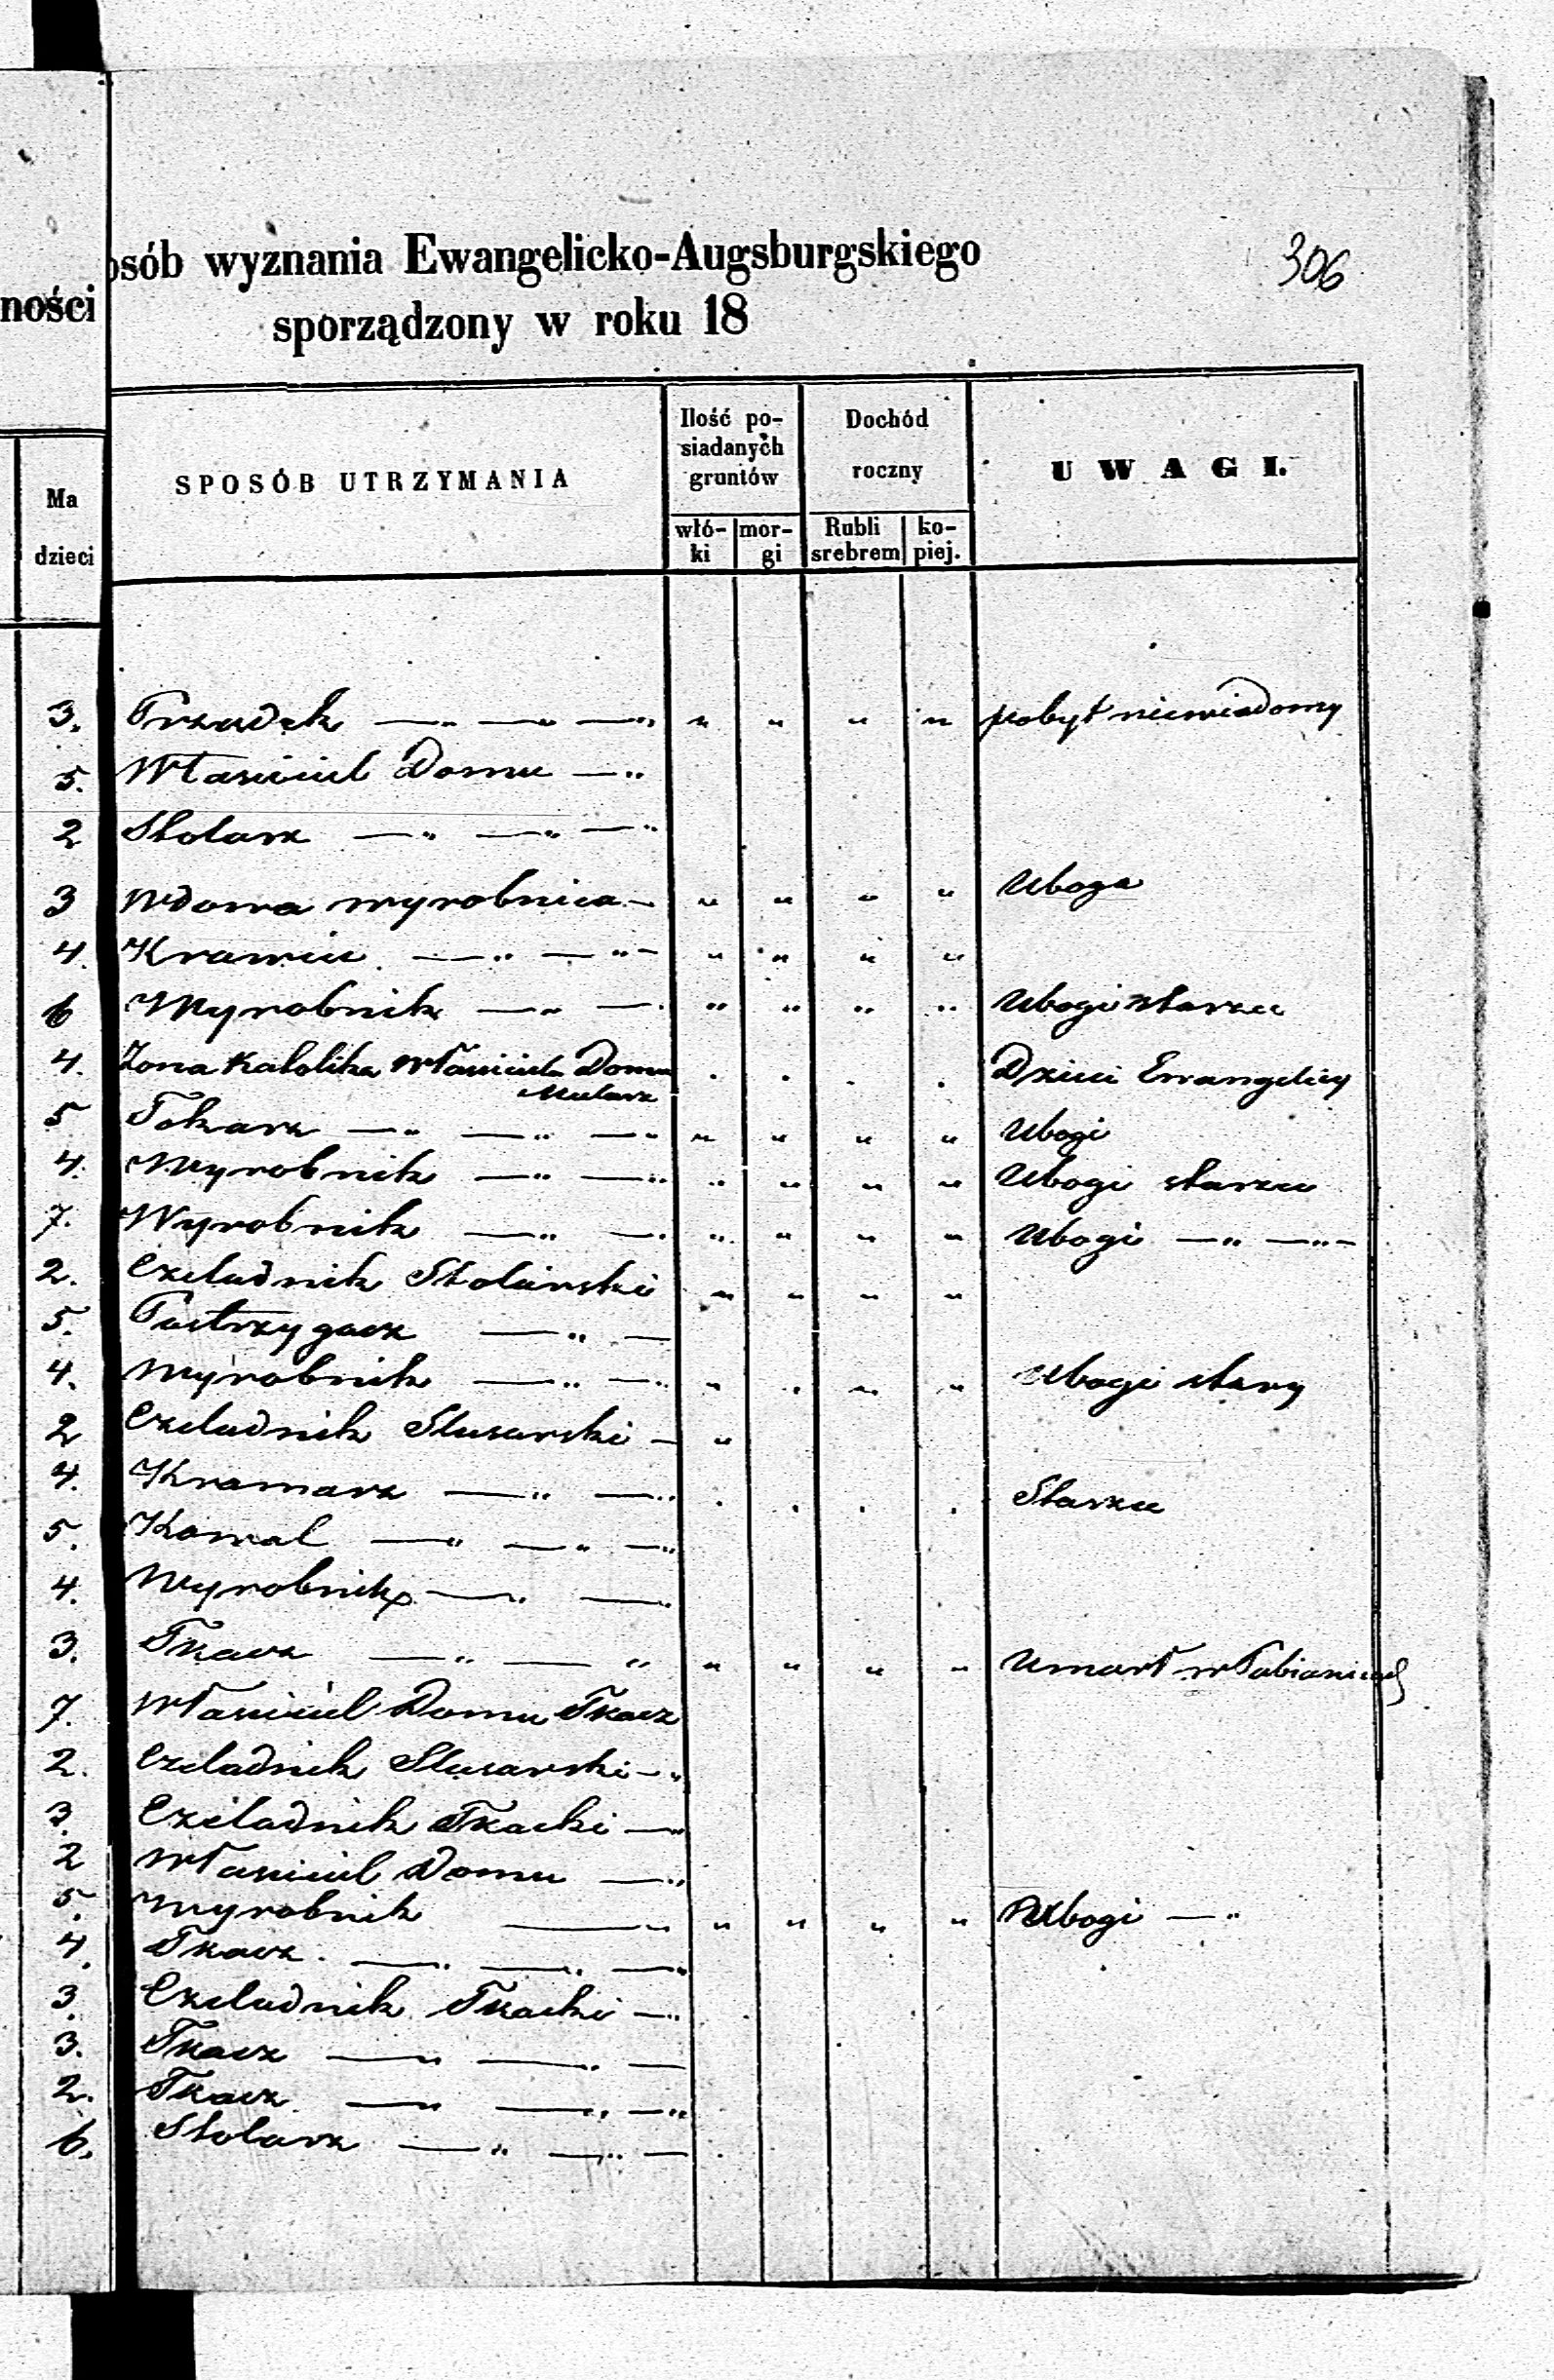 306
osób wyznania Ewangelicko-Augsburgskiego
ności
sporządzony w roku 18
Ma dzieci
SPOSÓB UTRZYMANIA
Ilość po-
siadanych
gruntów
włó-
ki
mor-
gi
Dochód
roczny
Rubli
srebrem
ko-
piej.
UWAGI.
3. Przadek — „ — „ — „ „ „ „ „ pobyt niewiadomy
5. Właściciel Domu — „
2 Stolarz — „ — „ — „
3 Wdowa wyrobnica — „ „ „ „ Uboga
4. Krawiec — „ — „ — „ „ „ „
6 Wyrobnik — „ — „ „ „ „ Ubogi starzec
4. Żona Katolika Właściciela Domu . . . . Dzieci Ewangelicy
Mularz
5 Tokarz — „ — „ — „ „ „ „ „ Ubogi
4. Wyrobnik — „ — „ „ „ „ „ Ubogi starzec
7. Wyrobnik — „ — . „ „ „ „ Ubogi — „ — „ —
2. Czeladnik Stolarski „ „ „ „
5. Postrzygacz — „ —
4. Wyrobnik — „ — „ „ „ „ „ Ubogi stary
2 Czeladnik Slusarski — „
4. Kramarz — „ — „ . . . . Starzec
5. Kowal — „ — „ — „
4. Wyrobnik — „ — .
3. Tkacz — „ — „ „ „ „ „ Umarł w Pabianicach
7. Właściciel Domu Tkacz
2. Czeladnik Slusarski — „
3. Czeladnik Tkacki — „
2 Właściciel Domu — „
5. Wyrobnik — „ „ „ „ „ Ubogi — „
4. Tkacz — „ — „ — „
3. Czeladnik Tkacki — „
3. Tkacz — „ — „ —
2. Tkacz — „ — „ — „
6. Stolarz — „ — „ —